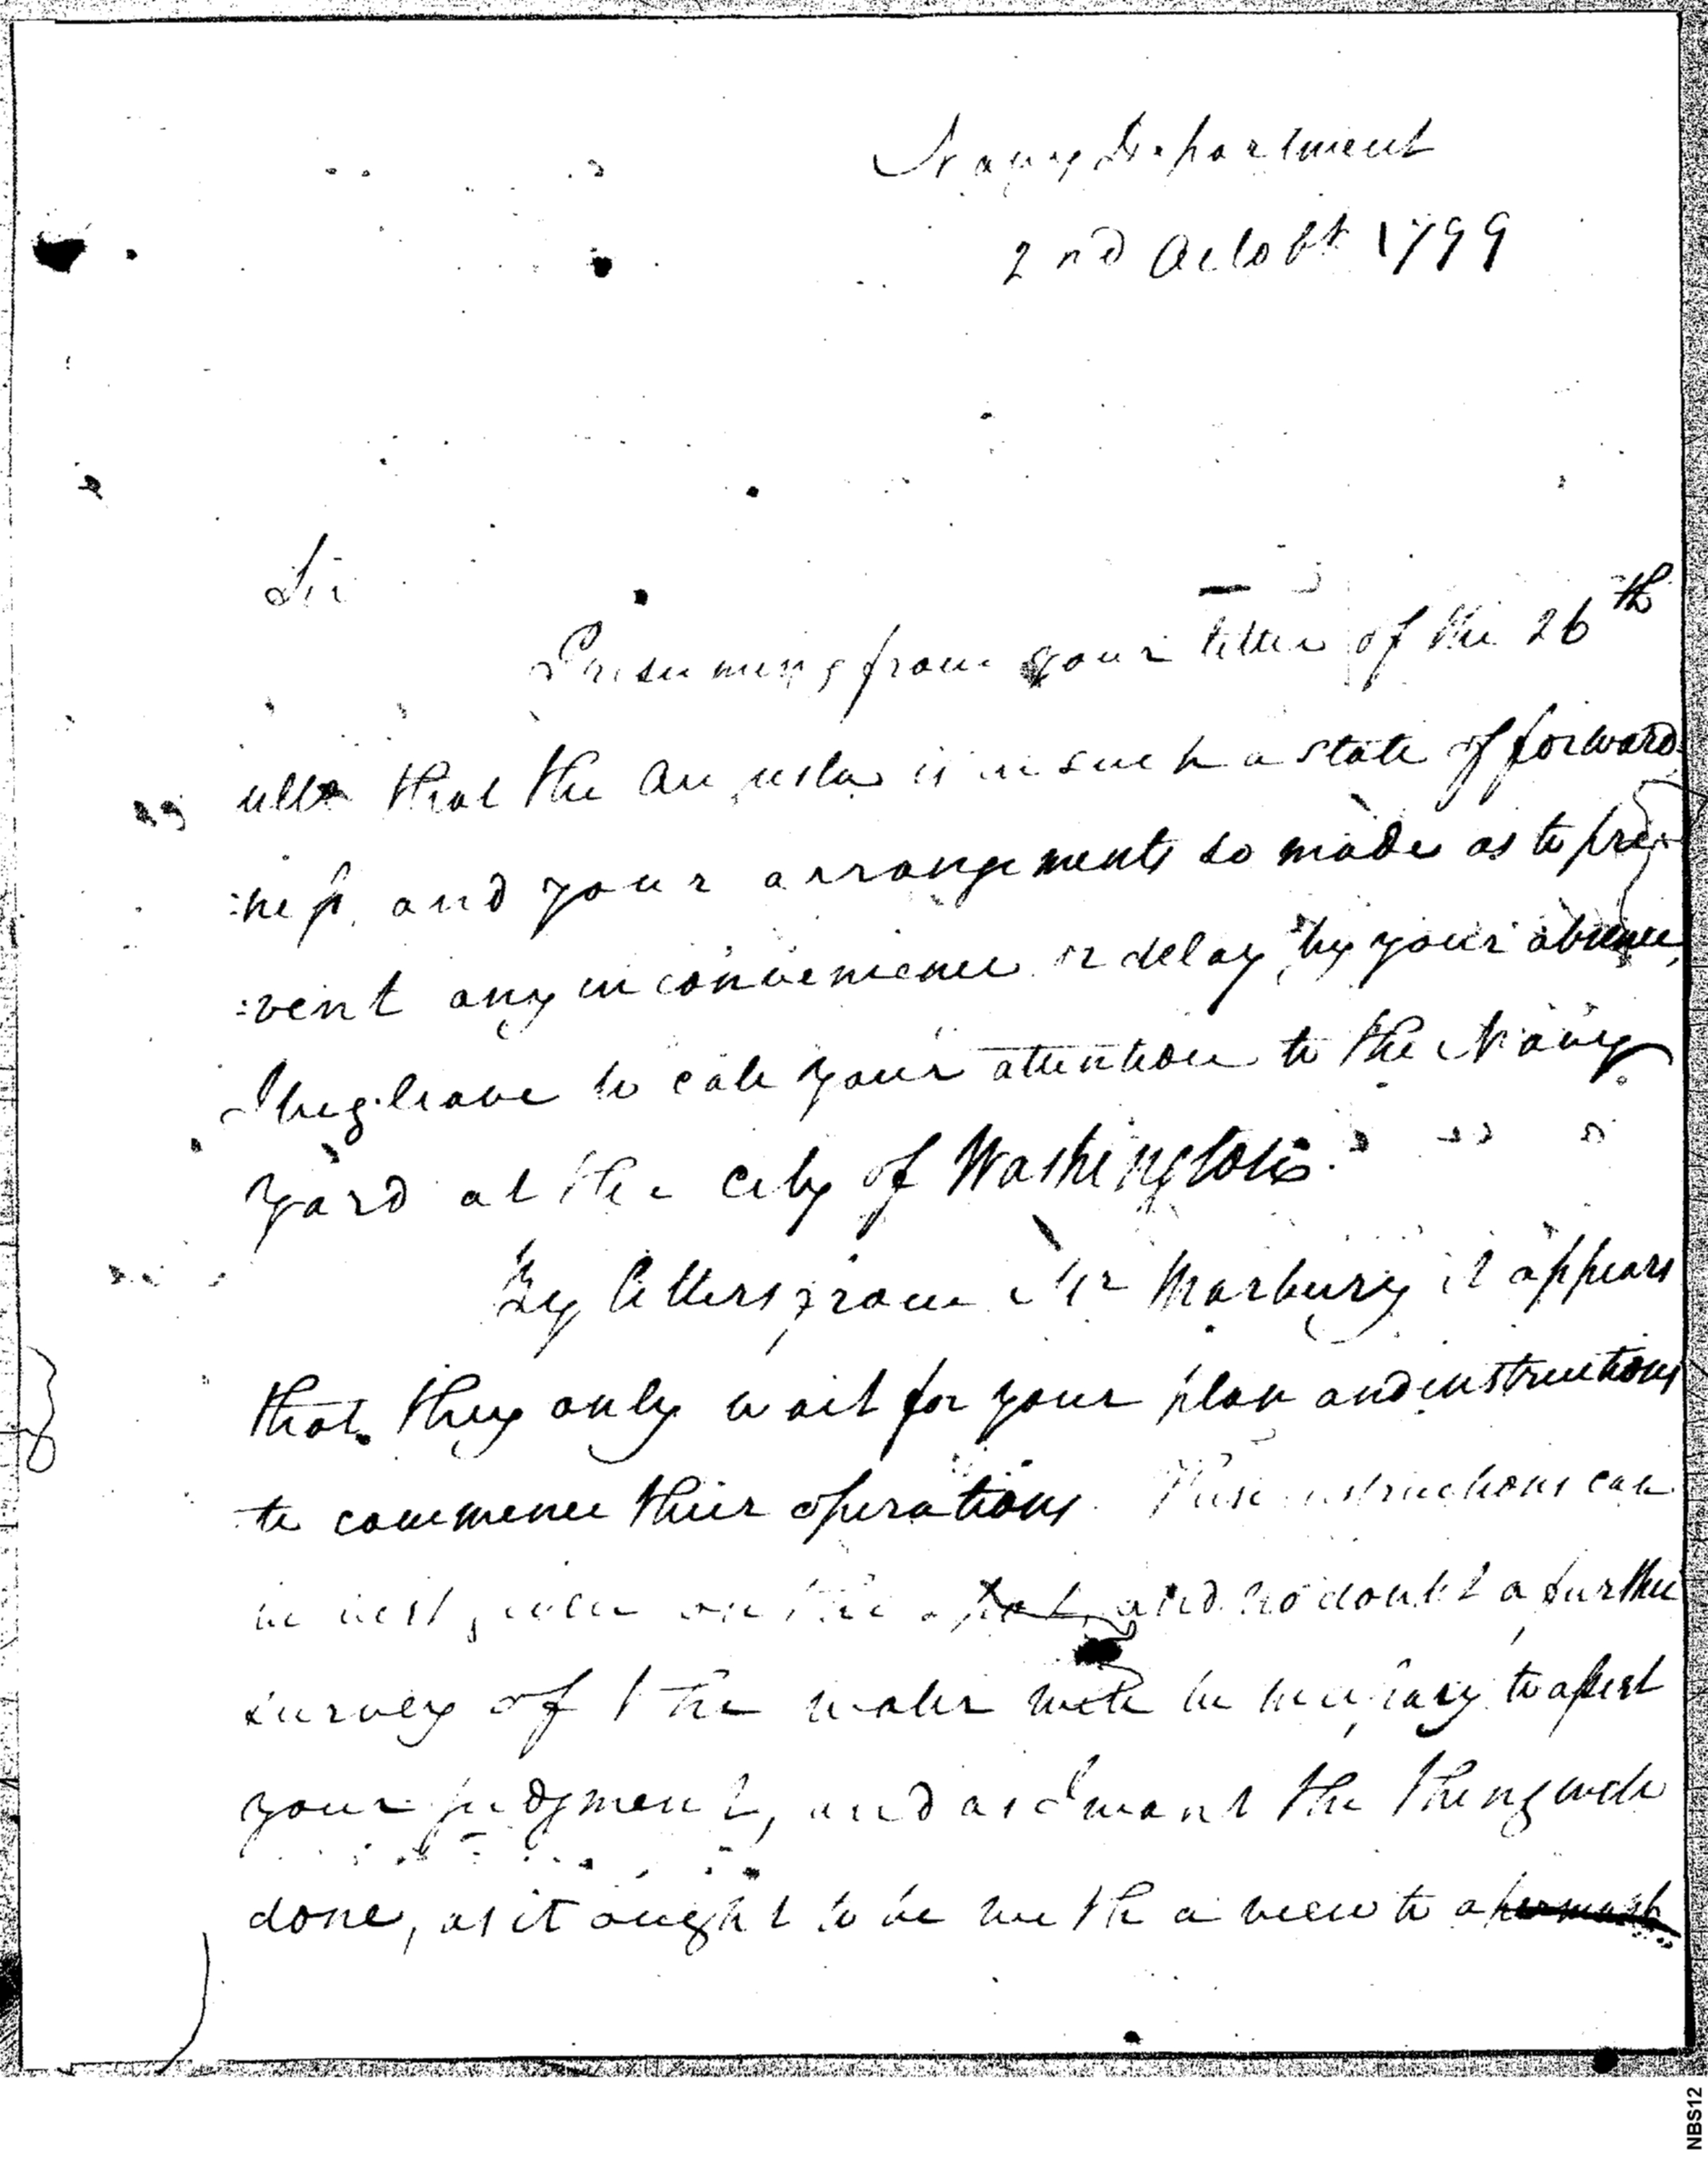 Navy Department
2nd Octobr 1799
Sir
Presuming from your letter of the 26th
ulto that the Augusta is in such a state of forward
:ness, and your arrangements so made as to pre
:vent any inconvenience or delay, by your absence,
I beg leave to call your attention to the Navy
yard at the city of Washington.
By letters from Mr Marbury it appears
that they only wait for your plan and instructions
to commence their operations. These instructions can
be best given on the spot, and no doubt a further
survey of the water will be necessary to assist
your judgment, and as I want the thing well
done, as it ought to be with a view to a
NBS12